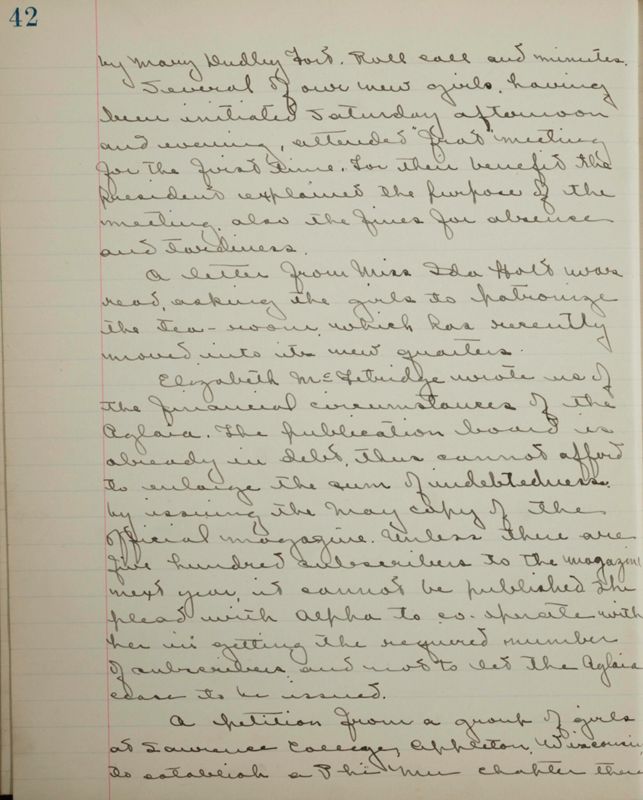 42
by Mary Dudley Fort. Roll call and minutes.
Several of our new girls, having
been initiated Saturday afternoon
and evening, attended "frat" meeting
for the first time. For their benefit the
president explained the purpose of the
meeting, also the fines for absence
and tardiness.
A letter from Miss Ida Holt was
read, asking the girls to patronize
the tea-room, which has recently
moved into its new quarters.
Elizabeth McFetridge wrote us of
the financial circumstances of the
Aglaia. The publication board is
already in debt, thus cannot afford
to enlarge the sum of indebtedness
by issuing the May copy of the
official magazine. Unless there are
five hundred subscribers to the magazine
next year, it cannot be published. She
plead with Alpha to co-operate with
her in getting the required number
of subscribers and not to let the Aglaia
cease to be issued.
A petition from a group of girls
at Lawrence College, Appleton, Wisconsin
to establish a Phi Mu chapter there